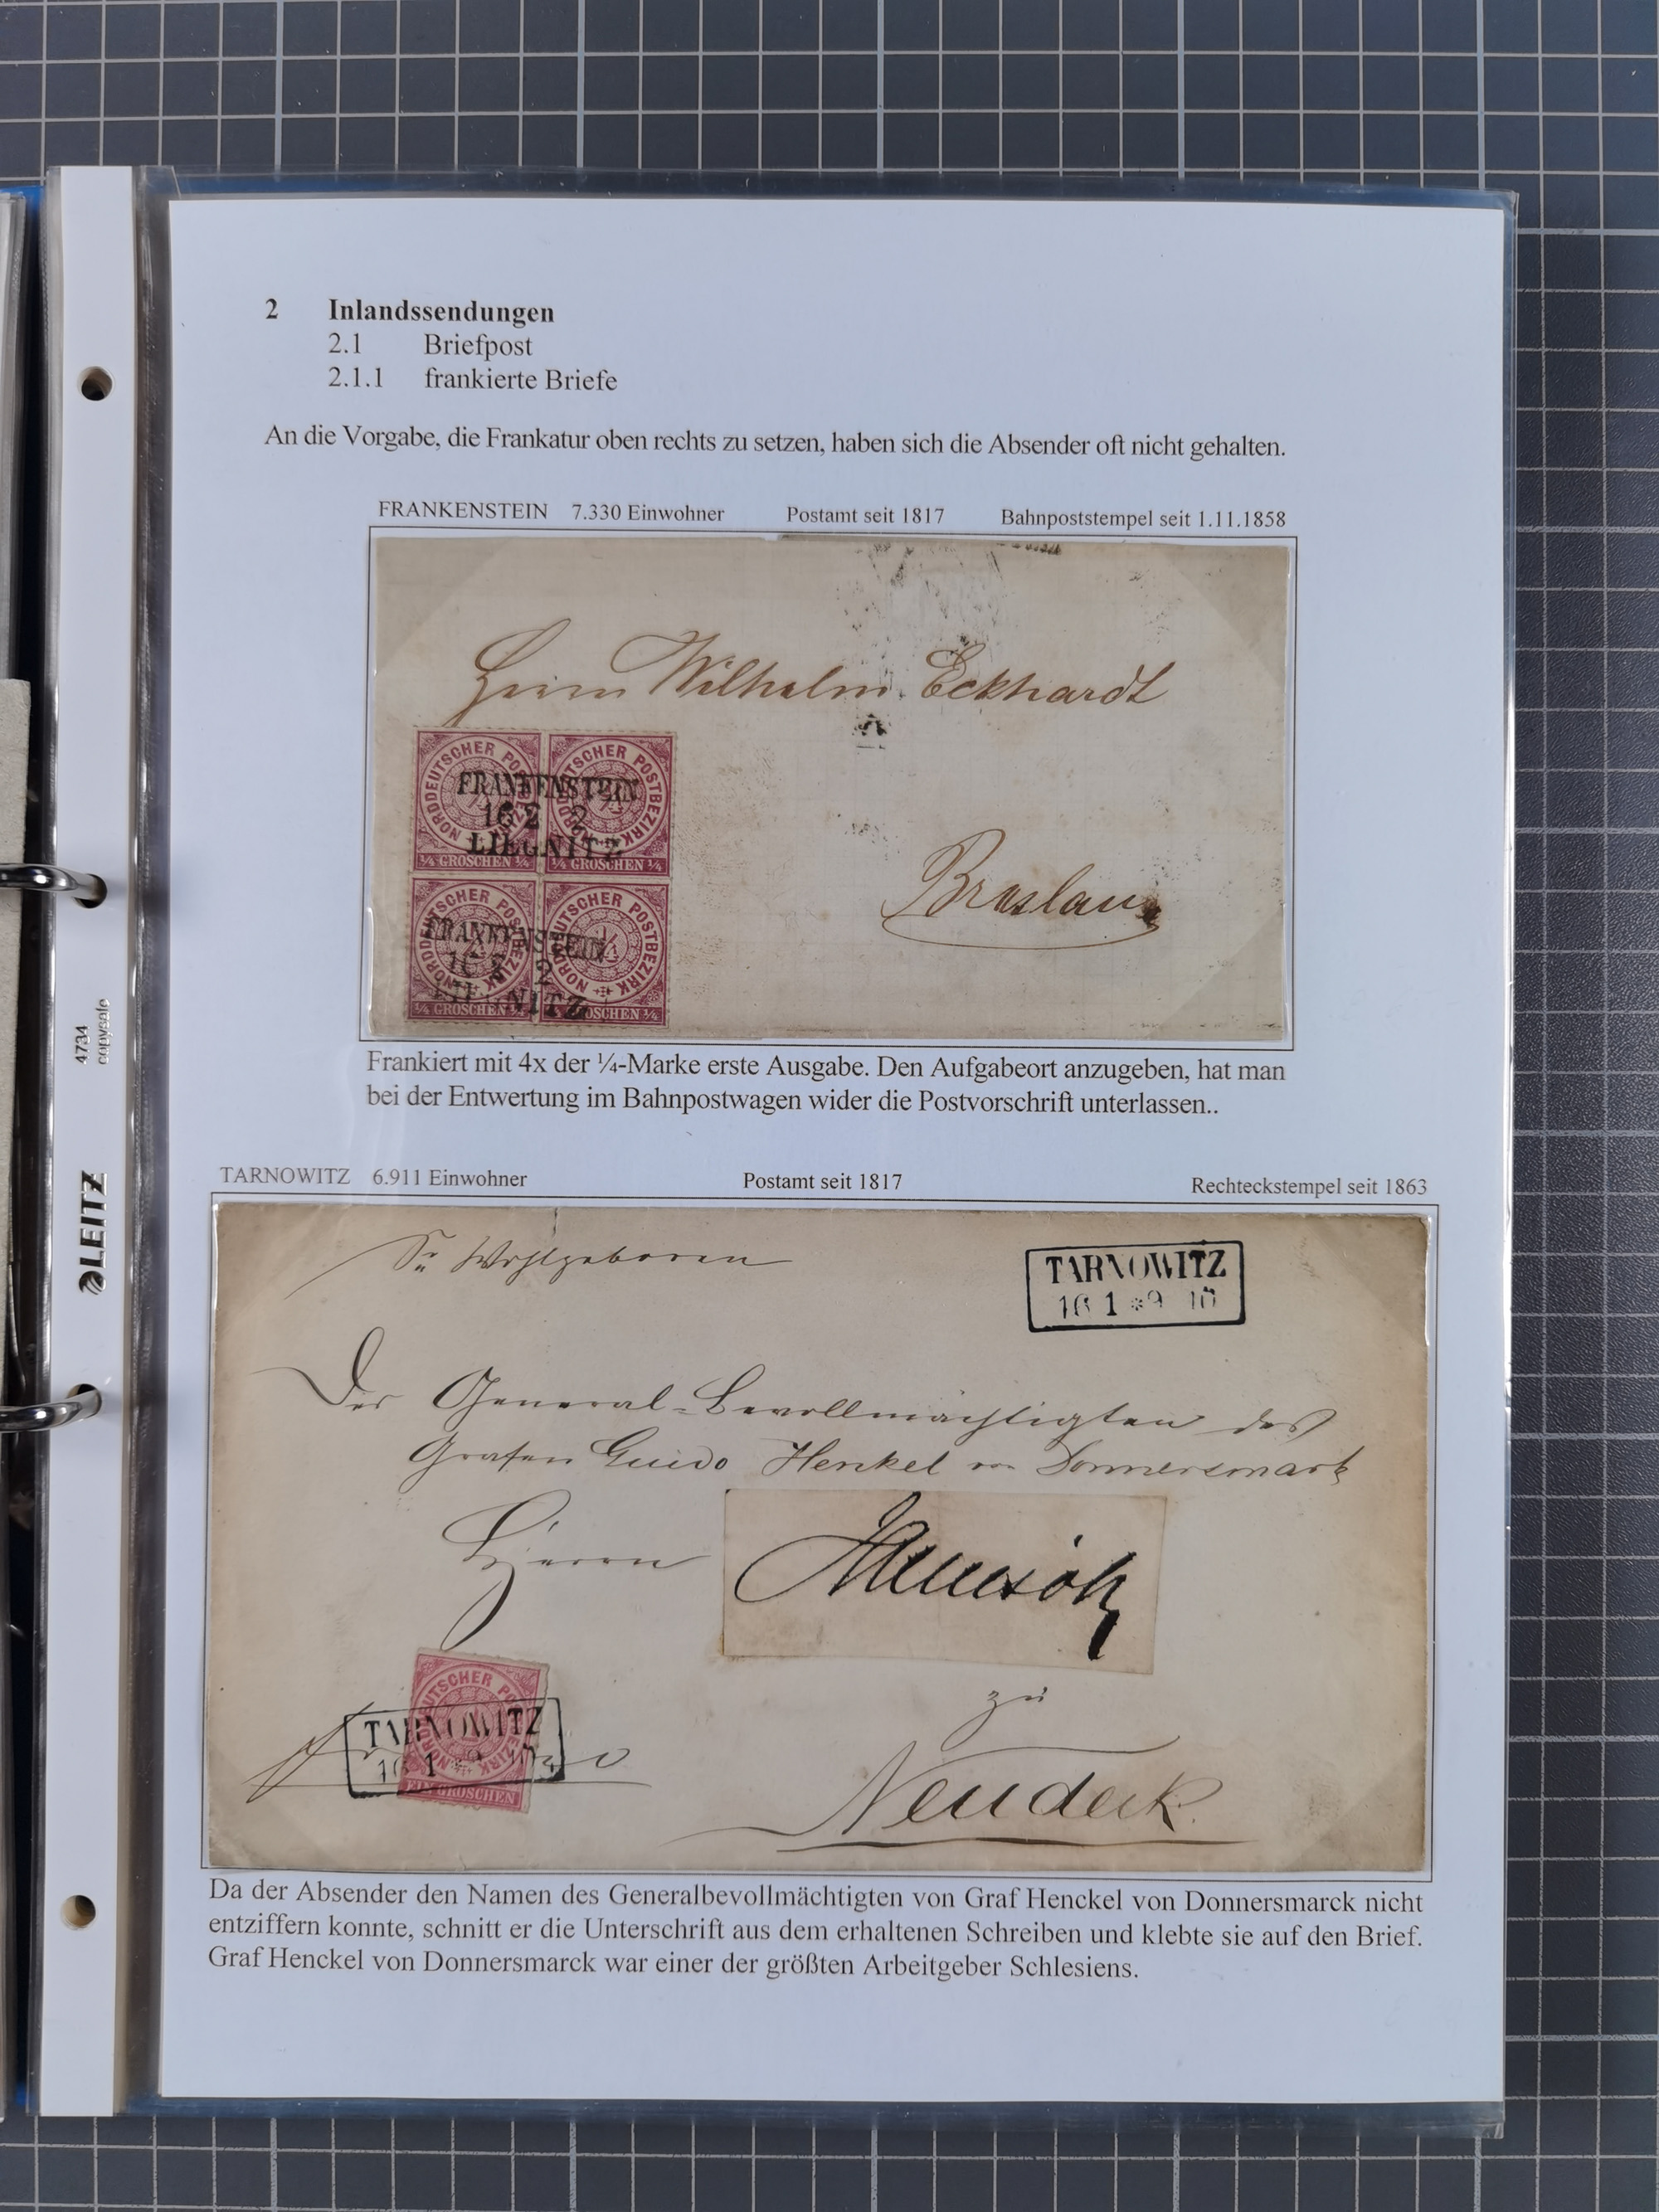 2 Inlandssendungen
2.1 Briefpost
2.1.1 frankierte Briefe
An die Vorgabe, die Frankatur oben rechts zu setzen, haben sich die Absender oft nicht gehalten.
FRANKENSTEIN 7.330 Einwohner Postamt seit 1817 Bahnpoststempel seit 1.11.1858
Herrn Wilhelm Eckhardt
NORDDEUTSCHER POSTBEZIRK
NORDDEUTSCHER POSTBEZIRK
FRANKENSTEIN
16 2 2
LIEGNITZ
¼ GROSCHEN ¼
¼ GROSCHEN ¼
Breslau
NORDDEUTSCHER POSTBEZIRK
NORDDEUTSCHER POSTBEZIRK
FRANKENSTEIN
16 2 2
LIEGNITZ
¼ GROSCHEN ¼
¼ GROSCHEN ¼
Frankiert mit 4x der ¼-Marke erste Ausgabe. Den Aufgabeort anzugeben, hat man
bei der Entwertung im Bahnpostwagen wider die Postvorschrift unterlassen..
4734
copysafe
LEITZ
TARNOWITZ 6.911 Einwohner Postamt seit 1817 Rechteckstempel seit 1863
Sr Wohlgeboren
TARNOWITZ
16 1 * 9 10
Der General-Bevollmächtigten des
Grafen Guido Henkel von Donnersmark
Herrn
zu
NORDDEUTSCHER POSTBEZIRK
TARNOWITZ
16 1 * 9 10
EIN GROSCHEN
Neudeck.
Da der Absender den Namen des Generalbevollmächtigten von Graf Henckel von Donnersmarck nicht
entziffern konnte, schnitt er die Unterschrift aus dem erhaltenen Schreiben und klebte sie auf den Brief.
Graf Henckel von Donnersmarck war einer der größten Arbeitgeber Schlesiens.